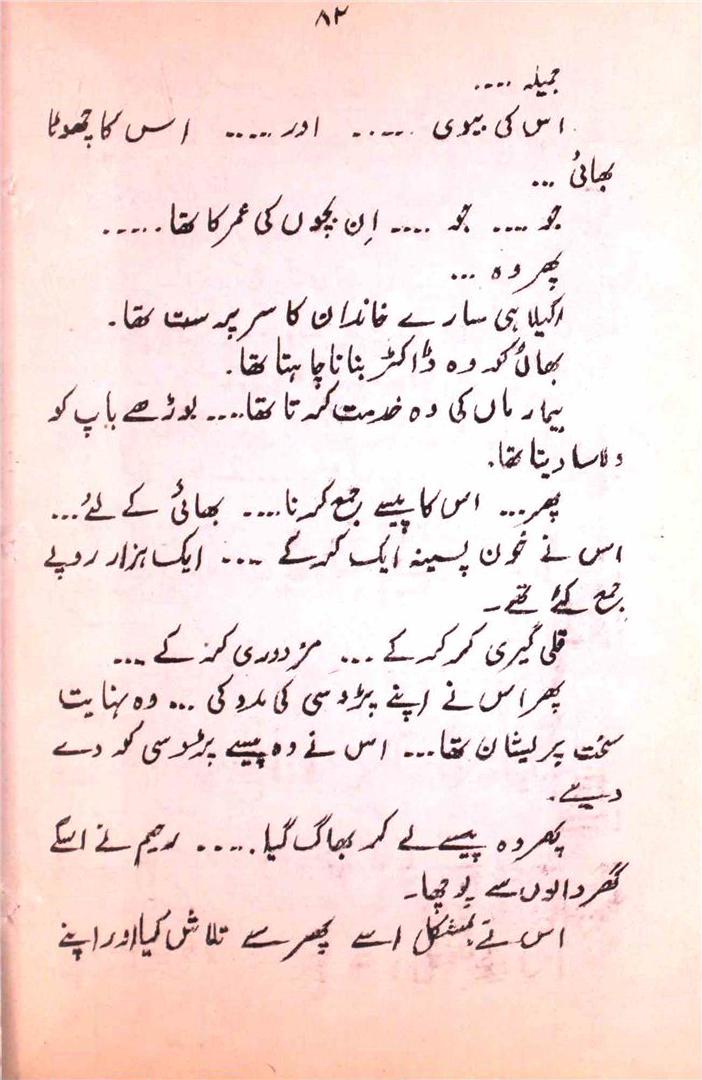 ۸۲
جمیلہ ....
اس کی بیوی ..... اور ..... اس کا چھوٹا
بھائی ...
جو .... جو .... اِن بچوں کی عمر کا تھا .....
پھر وہ ...
اکیلا ہی سارے خاندان کا سرپرست تھا۔
بھائی کو وہ ڈاکٹر بنانا چاہتا تھا۔
بیمار ماں کی وہ خدمت کرتا تھا .... بوڑھے باپ کو
دلاسا دیتا تھا۔
پھر ... اس کا پیسے جمع کرنا .... بھائی کے لئے ...
اس نے خون پسینہ ایک کرکے .... ایک ہزار روپے
جمع کئے تھے۔
قلی گیری کر کر کے ... مزدوری کرکے ...
پھر اس نے اپنے پڑوسی کی مدد کی ... وہ نہایت
سخت پریشان تھا ... اس نے وہ پیسے پڑوسی کو دے
دیئے۔
پھر وہ پیسے لے کر بھاگ گیا ..... رحیم نے اسکے
گھر والوں سے پوچھا۔
اس نے بمشکل اسے پھر سے تلاش کیا اور اپنے